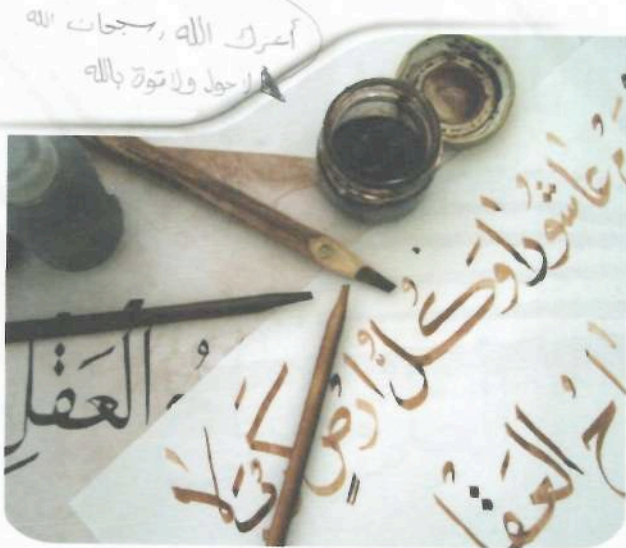 الله , سبحان الله
لا حول ولا قوة بالله
عَاشورا وَكُلُّ ارضٍ كَربَلا
العَقلِ